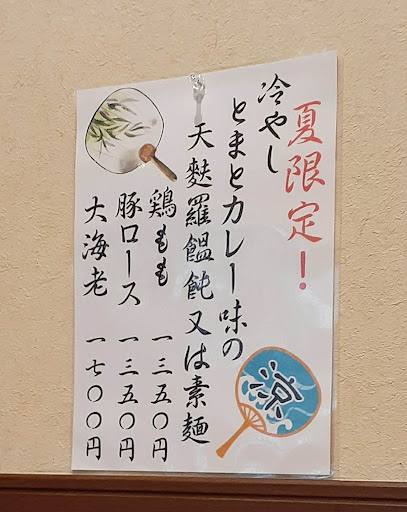 夏限定!
冷やし
とまとカレー味の
天麩羅饂飩又は素麺
鶏もも 一三五〇円
豚ロース 一三五〇円
大海老 一七〇〇円
涼